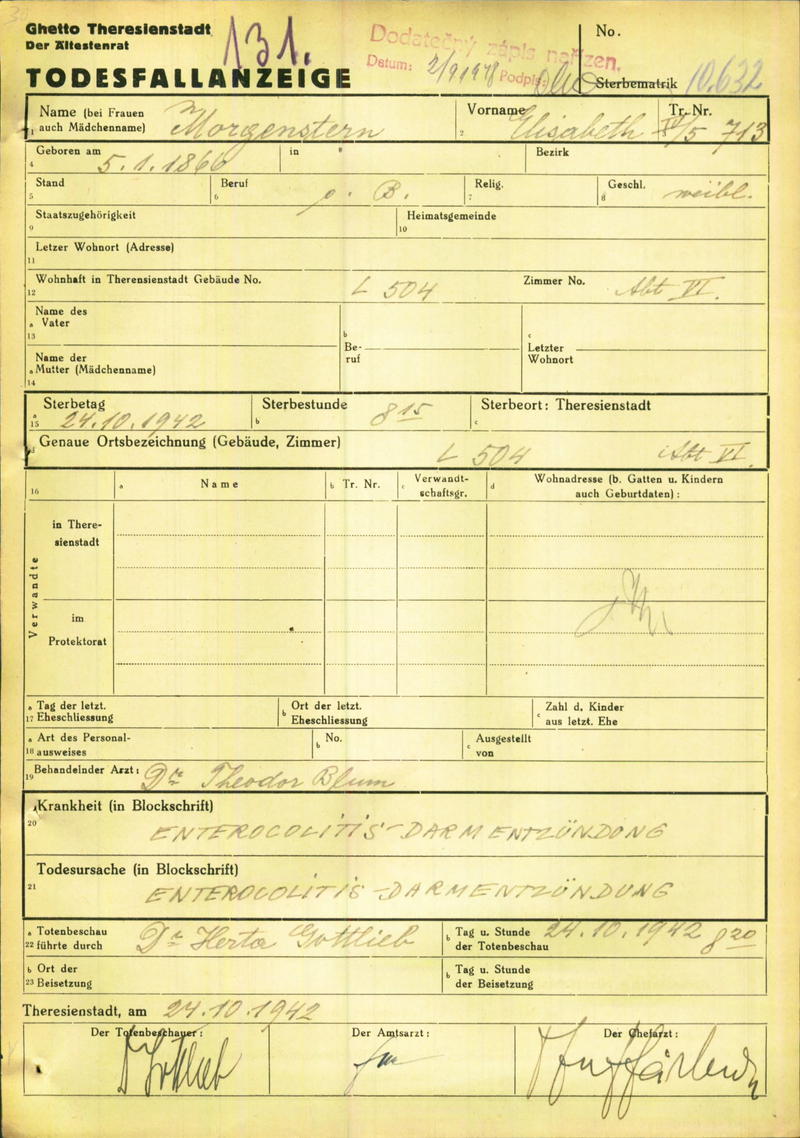 Ghetto Theresienstadt
Der Ältestenrat
131.
TODESFALLANZEIGE
Dodatečný zápis nařízen.
Datum: 2/9 1948 Podpis:
No.
Sterbematrik 10,632
Name (bei Frauen auch Mädchenname) Morgenstern
1
Vorname Elisabeth
2
Tr.-Nr. IV/5 713
Geboren am 5.1.1866
4
in
Bezirk
Stand
5
Beruf o. B.
6
Relig.
7
Geschl. weibl.
8
Staatszugehörigkeit
9
Heimatsgemeinde
10
Letzer Wohnort (Adresse)
11
Wohnhaft in Therensienstadt Gebäude No. L 504
12
Zimmer No. Abt VI.
Name des
a Vater
13
b
Be-
ruf
c
Letzter
Wohnort
Name der
a Mutter (Mädchenname)
14
Sterbetag
a
15 24.10.1942
Sterbestunde 8 15
b
Sterbeort: Theresienstadt
c
Genaue Ortsbezeichnung (Gebäude, Zimmer) L 504 Abt VI.
16
a Name
b Tr. Nr.
c Verwandt-
schaftsgr.
d Wohnadresse (b. Gatten u. Kindern
auch Geburtdaten) :
Verwandte
in There-
sienstadt
im
Protektorat
a Tag der letzt.
17 Eheschliessung
b Ort der letzt.
Eheschliessung
c Zahl d. Kinder
aus letzt. Ehe
a Art des Personal-
18 ausweises
b No.
c Ausgestellt
von
19 Behandelnder Arzt : Dr Theodor Blum
Krankheit (in Blockschrift)
20
ENTEROCOLITIS-DARMENTZÜNDUNG
Todesursache (in Blockschrift)
21
ENTEROCOLITIS-DARMENTZÜNDUNG
a Totenbeschau
22 führte durch Dr Herta Gottlieb
b Tag u. Stunde
der Totenbeschau 24.10.1942 8 20
b Ort der
23 Beisetzung
b Tag u. Stunde
der Beisetzung
Theresienstadt, am 24.10.1942
Der Totenbeschauer :
Dr Gottlieb
Der Amtsarzt :
Der Chefarzt :